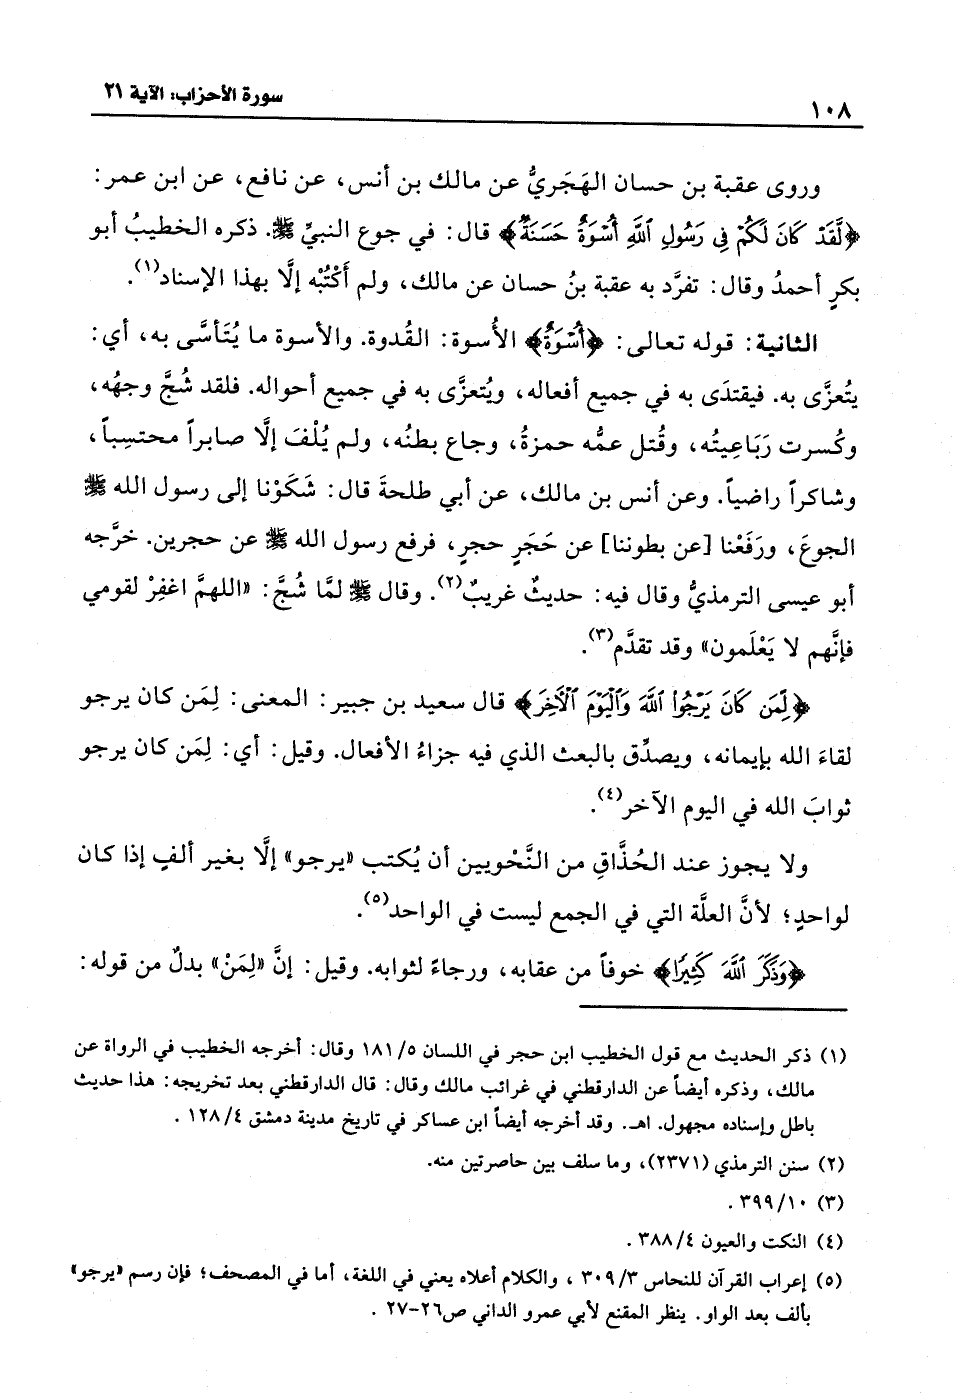 ١٠٨ سورة الأحزاب: الآية ٢١
وروى عقبة بن حسان الهَجَريُّ عن مالك بن أنس، عن نافع، عن ابن عمر:
﴿لَّقَدْ كَانَ لَكُمْ فِى رَسُولِ ٱللَّهِ أُسْوَةٌ حَسَنَةٌ﴾ قال: في جوع النبيِّ ﷺ. ذكره الخطيبُ أبو
بكرٍ أحمدُ وقال: تفرَّد به عقبة بنُ حسان عن مالك، ولم أَكْتُبْه إلَّا بهذا الإسناد(١).
الثانية: قوله تعالى: ﴿أُسْوَةٌ﴾ الأُسوة: القُدوة. والأسوة ما يُتَأسَّى به، أي:
يتُعزَّى به. فيقتدَى به في جميع أفعاله، ويُتعزَّى به في جميع أحواله. فلقد شُجَّ وجهُه،
وكُسرت رَبَاعِيتُه، وقُتل عمُّه حمزةُ، وجاع بطنُه، ولم يُلْفَ إلَّا صابراً محتسِباً،
وشاكراً راضياً. وعن أنس بن مالك، عن أبي طلحةَ قال: شَكَوْنا إلى رسول الله ﷺ
الجوعَ، ورَفَعْنا [عن بطوننا] عن حَجَرٍ حجرٍ، فرفع رسول الله ﷺ عن حجرين. خرَّجه
أبو عيسى الترمذيُّ وقال فيه: حديثٌ غريبٌ(٢). وقال ﷺ لمَّا شُجَّ: «اللهمَّ اغفِرْ لقومي
فإنَّهم لا يَعْلَمون» وقد تقدَّم(٣).
﴿لِّمَن كَانَ يَرْجُوا۟ ٱللَّهَ وَٱلْيَوْمَ ٱلْأَخِرَ﴾ قال سعيد بن جبير: المعنى: لِمَن كان يرجو
لقاءَ الله بإيمانه، ويصدِّق بالبعث الذي فيه جزاءُ الأفعال. وقيل: أي: لِمَن كان يرجو
ثوابَ الله في اليوم الآخر(٤).
ولا يجوز عند الحُذَّاقِ من النَّحْويين أن يُكتب «يرجو» إلَّا بغير ألفٍ إذا كان
لواحدٍ؛ لأنَّ العلَّة التي في الجمع ليست في الواحد(٥).
﴿وَذَكَرَ ٱللَّهَ كَثِيرًا﴾ خوفاً من عقابه، ورجاءً لثوابه. وقيل: إنَّ «لِمَنْ» بدلٌ من قوله:
(١) ذكر الحديث مع قول الخطيب ابن حجر في اللسان ٥/ ١٨١ وقال: أخرجه الخطيب في الرواة عن
مالك، وذكره أيضاً عن الدارقطني في غرائب مالك وقال: قال الدارقطني بعد تخريجه: هذا حديث
باطل وإسناده مجهول. اهـ. وقد أخرجه أيضاً ابن عساكر في تاريخ مدينة دمشق ٤/ ١٢٨ .
(٢) سنن الترمذي (٢٣٧١)، وما سلف بين حاصرتين منه.
(٣) ١٠/ ٣٩٩ .
(٤) النكت والعيون ٤/ ٣٨٨ .
(٥) إعراب القرآن للنحاس ٣/ ٣٠٩ ، والكلام أعلاه يعني في اللغة، أما في المصحف؛ فإن رسم «يرجو»
بألف بعد الواو. ينظر المقنع لأبي عمرو الداني ص٢٦-٢٧ .